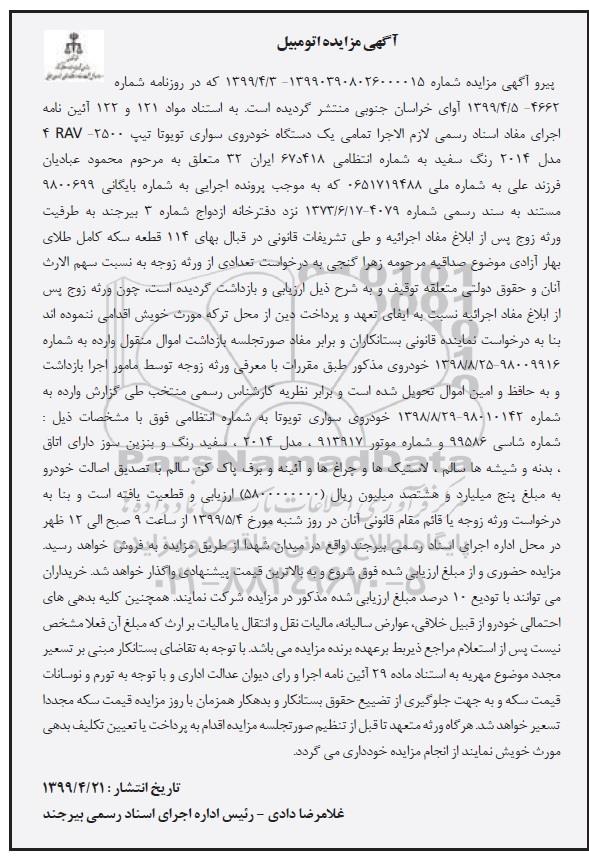 آگهی مزایده اتومبیل
پیرو آگهی مزایده شماره ۱۳۹۹۰۳۹۰۸۰۲۶۰۰۰۰۱۵- ۱۳۹۹/۴/۳ که در روزنامه شماره
۴۶۶۲- ۱۳۹۹/۴/۵ آوای خراسان جنوبی منتشر گردیده است. به استناد مواد ۱۲۱ و ۱۲۲ آئین نامه
اجرای مفاد اسناد رسمی لازم الاجرا تمامی یک دستگاه خودروی سواری تویوتا تیپ RAV -۲۵۰۰ ۴
مدل ۲۰۱۴ رنگ سفید به شماره انتظامی ۴۱۸د۶۷ ایران ۳۲ متعلق به مرحوم محمود عبادیان
فرزند علی به شماره ملی ۰۶۵۱۷۱۹۴۸۸ که به موجب پرونده اجرایی به شماره بایگانی ۹۸۰۰۶۹۹
مستند به سند رسمی شماره ۴۰۷۹-۱۳۷۳/۶/۱۷ نزد دفترخانه ازدواج شماره ۳ بیرجند به طرفیت
ورثه زوج پس از ابلاغ مفاد اجرائیه و طی تشریفات قانونی در قبال بهای ۱۱۴ قطعه سکه کامل طلای
بهار آزادی موضوع صداقیه مرحومه زهرا گنجی به درخواست تعدادی از ورثه زوجه به نسبت سهم الارث
آنان و حقوق دولتی متعلقه توقیف و به شرح ذیل ارزیابی و بازداشت گردیده است، چون ورثه زوج پس
از ابلاغ مفاد اجرائیه نسبت به ایفای تعهد و پرداخت دین از محل ترکه مورث خویش اقدامی ننموده اند
بنا به درخواست نماینده قانونی بستانکاران و برابر مفاد صورتجلسه بازداشت اموال منقول وارده به شماره
۹۸۰۰۹۹۱۶-۱۳۹۸/۸/۲۵ خودروی مذکور طبق مقررات با معرفی ورثه زوجه توسط مامور اجرا بازداشت
و به حافظ و امین اموال تحویل شده است و برابر نظریه کارشناس رسمی منتخب طی گزارش وارده به
شماره ۹۸۰۱۰۱۴۲-۱۳۹۸/۸/۲۹ خودروی سواری تویوتا به شماره انتظامی فوق با مشخصات ذیل :
شماره شاسی ۹۹۵۸۶ و شماره موتور ۹۱۳۹۱۷ ، مدل ۲۰۱۴ ، سفید رنگ و بنزین سوز دارای اتاق
، بدنه و شیشه ها سالم ، لاستیک ها و چراغ ها و آئینه و برف پاک کن سالم با تصدیق اصالت خودرو
به مبلغ پنج میلیارد و هشتصد میلیون ریال (۵۸۰۰۰۰۰۰۰۰) ارزیابی و قطعیت یافته است و بنا به
درخواست ورثه زوجه یا قائم مقام قانونی آنان در روز شنبه مورخ ۱۳۹۹/۵/۴ از ساعت ۹ صبح الی ۱۲ ظهر
در محل اداره اجرای اسناد رسمی بیرجند واقع در میدان شهدا از طریق مزایده به فروش خواهد رسید.
مزایده حضوری و از مبلغ ارزیابی شده فوق شروع و به بالاترین قیمت پیشنهادی واگذار خواهد شد. خریداران
می توانند با تودیع ۱۰ درصد مبلغ ارزیابی شده مذکور در مزایده شرکت نمایند. همچنین کلیه بدهی های
احتمالی خودرو از قبیل خلافی، عوارض سالیانه، مالیات نقل و انتقال یا مالیات بر ارث که مبلغ آن فعلا مشخص
نیست پس از استعلام مراجع ذیربط برعهده برنده مزایده می باشد. با توجه به تقاضای بستانکار مبنی بر تسعیر
مجدد موضوع مهریه به استناد ماده ۲۹ آئین نامه اجرا و رای دیوان عدالت اداری و با توجه به تورم و نوسانات
قیمت سکه و به جهت جلوگیری از تضییع حقوق بستانکار و بدهکار همزمان با روز مزایده قیمت سکه مجددا
تسعیر خواهد شد. هرگاه ورثه متعهد تا قبل از تنظیم صورتجلسه مزایده اقدام به پرداخت یا تعیین تکلیف بدهی
مورث خویش نمایند از انجام مزایده خودداری می گردد.
تاریخ انتشار : ۱۳۹۹/۴/۲۱
غلامرضا دادی - رئیس اداره اجرای اسناد رسمی بیرجند
ParsNamadData
پایگاه اطلاع رسانی مناقصه و مزایده
۰۲۱-۸۸۳۴۹۶۷۰-۵